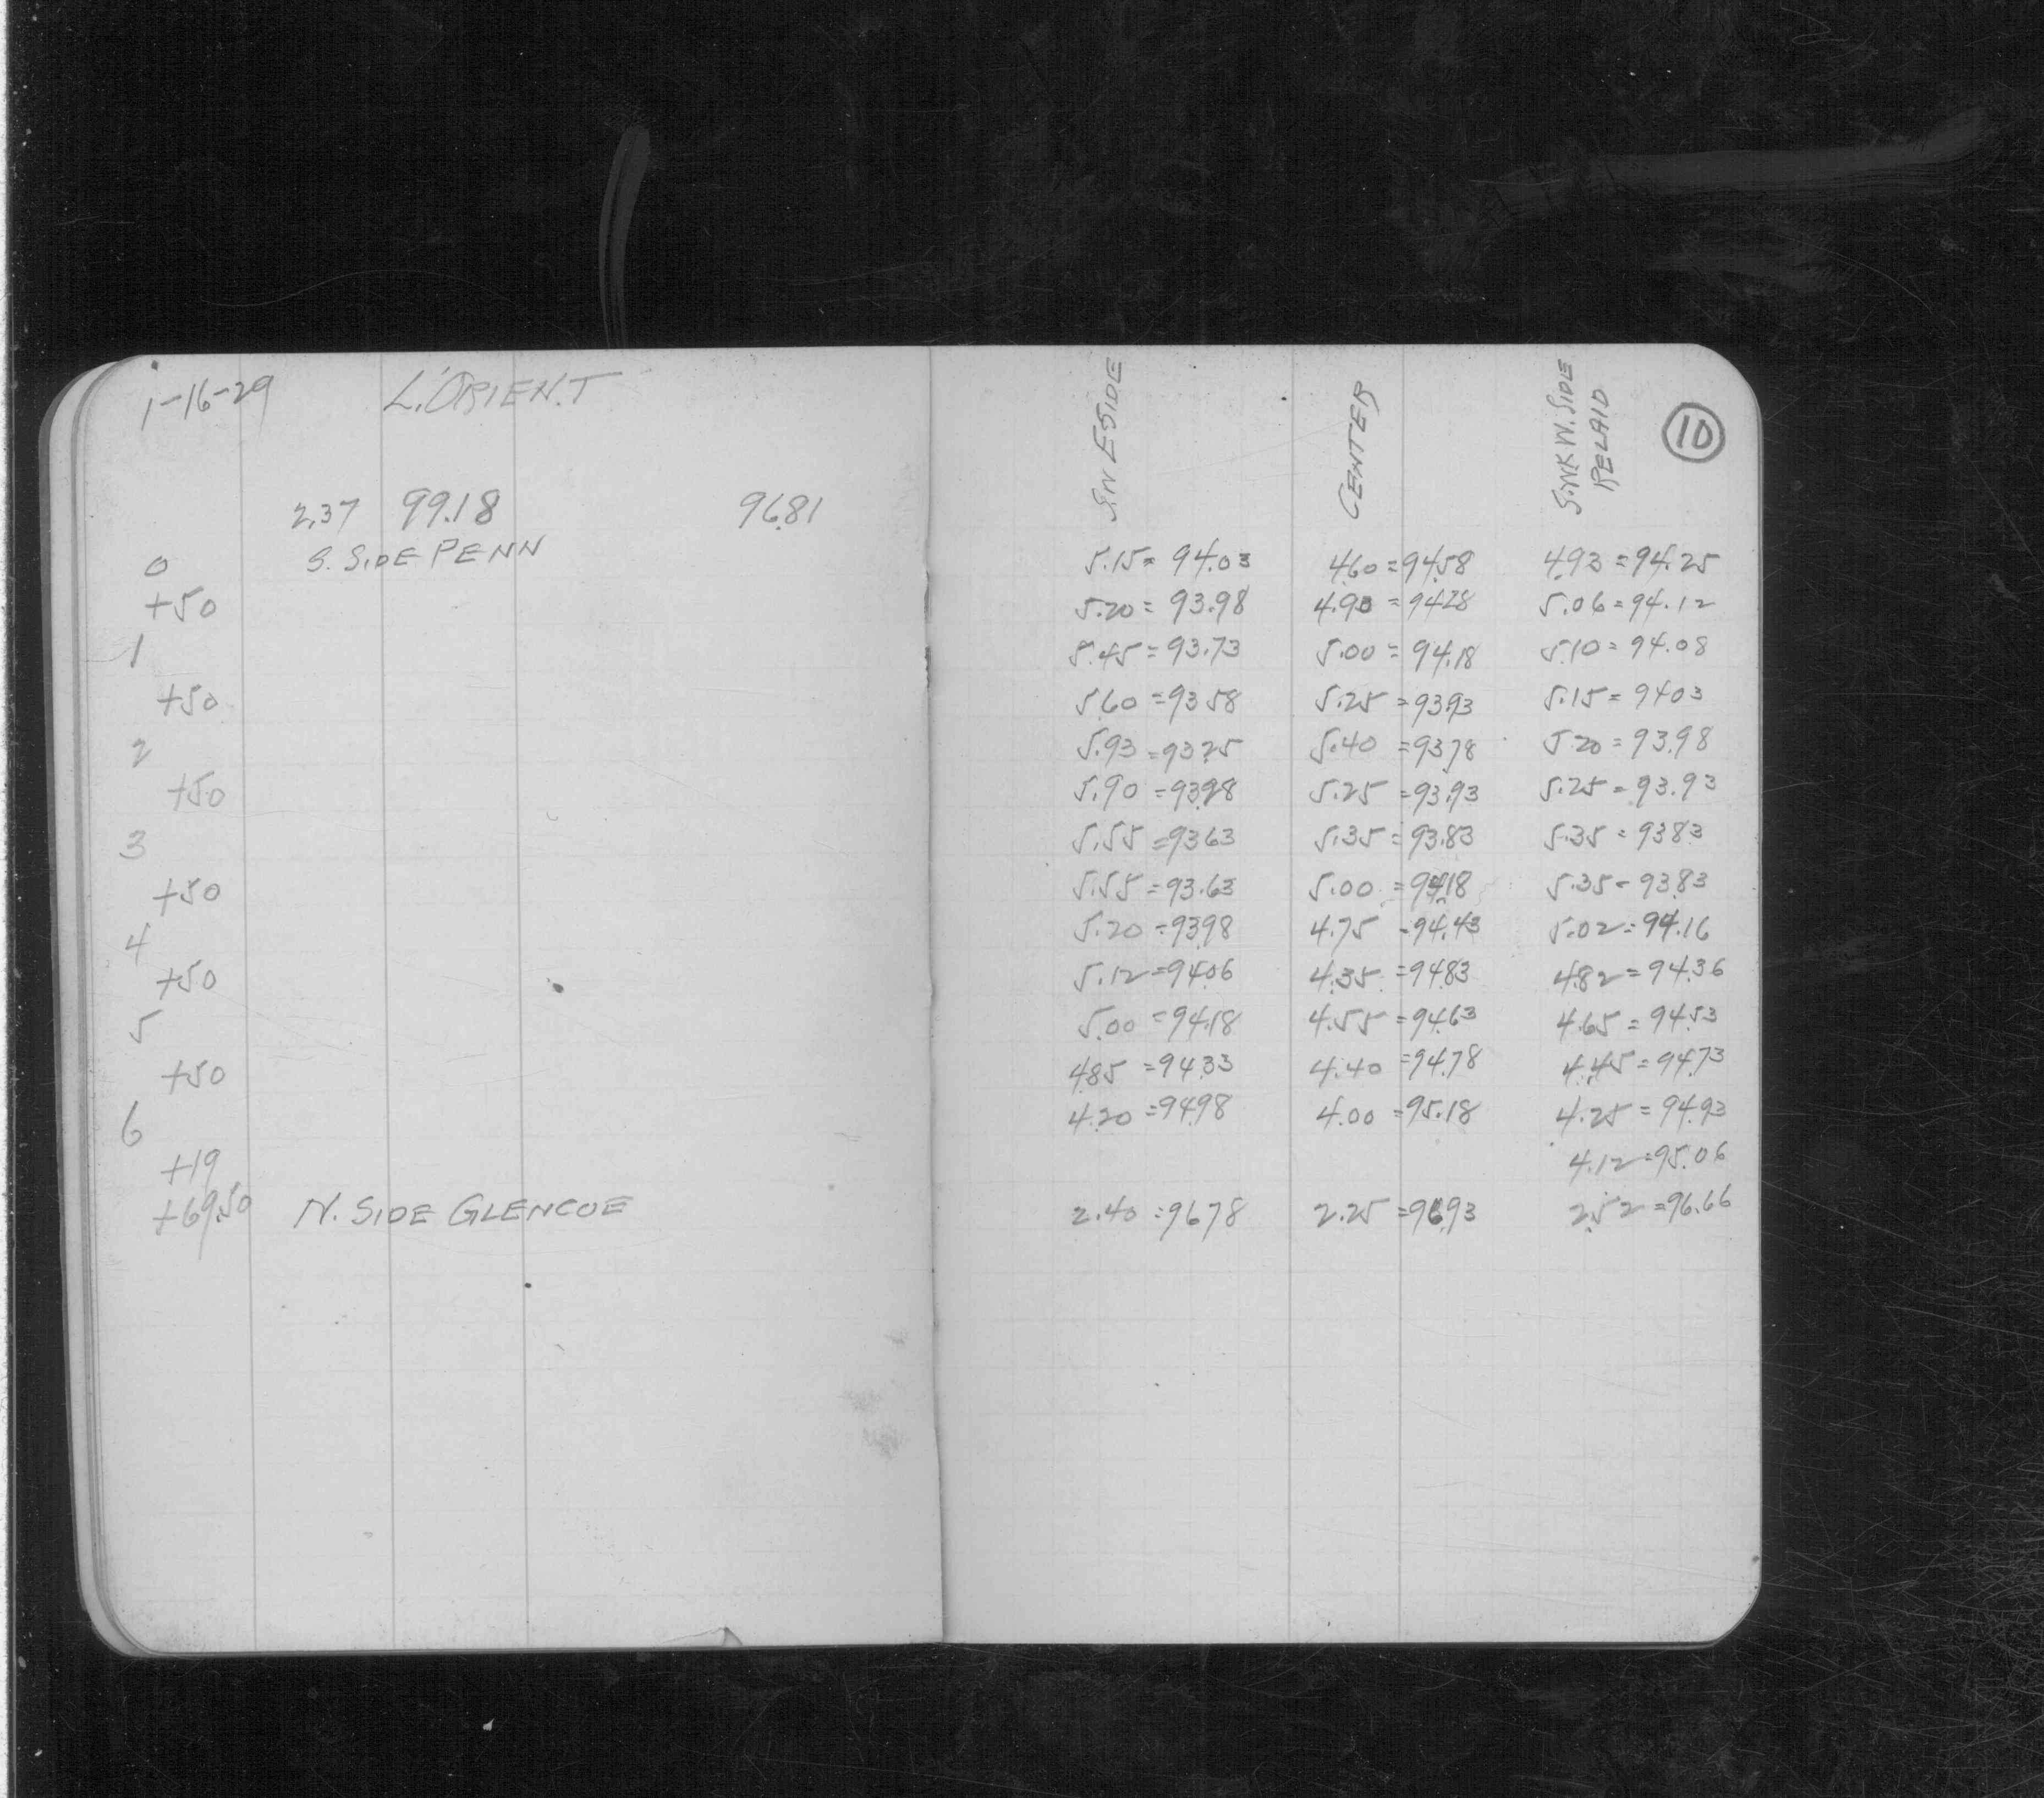 1-16-29 L'ORIENT
2.37 99.18 96.81
0 S. SIDE PENN
+50
1
+50
2
+50
3
+50
4
+50
5
+50
6
+19
+69.50 N. SIDE GLENCOE
10
E SIDE
CENTER
W. SIDE
RELAID
5.15 = 94.03 4.60 = 94.58 4.93 = 94.25
5.20 = 93.98 4.90 = 94.28 5.06 = 94.12
5.45 = 93.73 5.00 = 94.18 5.10 = 94.08
5.60 = 93 58 5.25 = 93.93 5.15 = 94 03
5.93 = 93.25 5.40 = 93.78 5.20 = 93.98
5.90 = 93.28 5.25 = 93.93 5.25 = 93.93
5.55 = 93 63 5.35 = 93.83 5.35 = 93 83
5.55 = 93.63 5.00 = 94.18 5.35 = 93.83
5.20 = 93.98 4.75 = 94.43 5.02 = 94.16
5.12 = 94.06 4.35 = 94.83 4.82 = 94.36
5.00 = 94.18 4.55 = 94.63 4.65 = 94.53
4.85 = 94.33 4.40 = 94.78 4.45 = 94.73
4.20 = 94.98 4.00 = 95.18 4.25 = 94.93
4.12 = 95.06
2.40 = 96 78 2.25 = 96.93 2.52 = 96.66